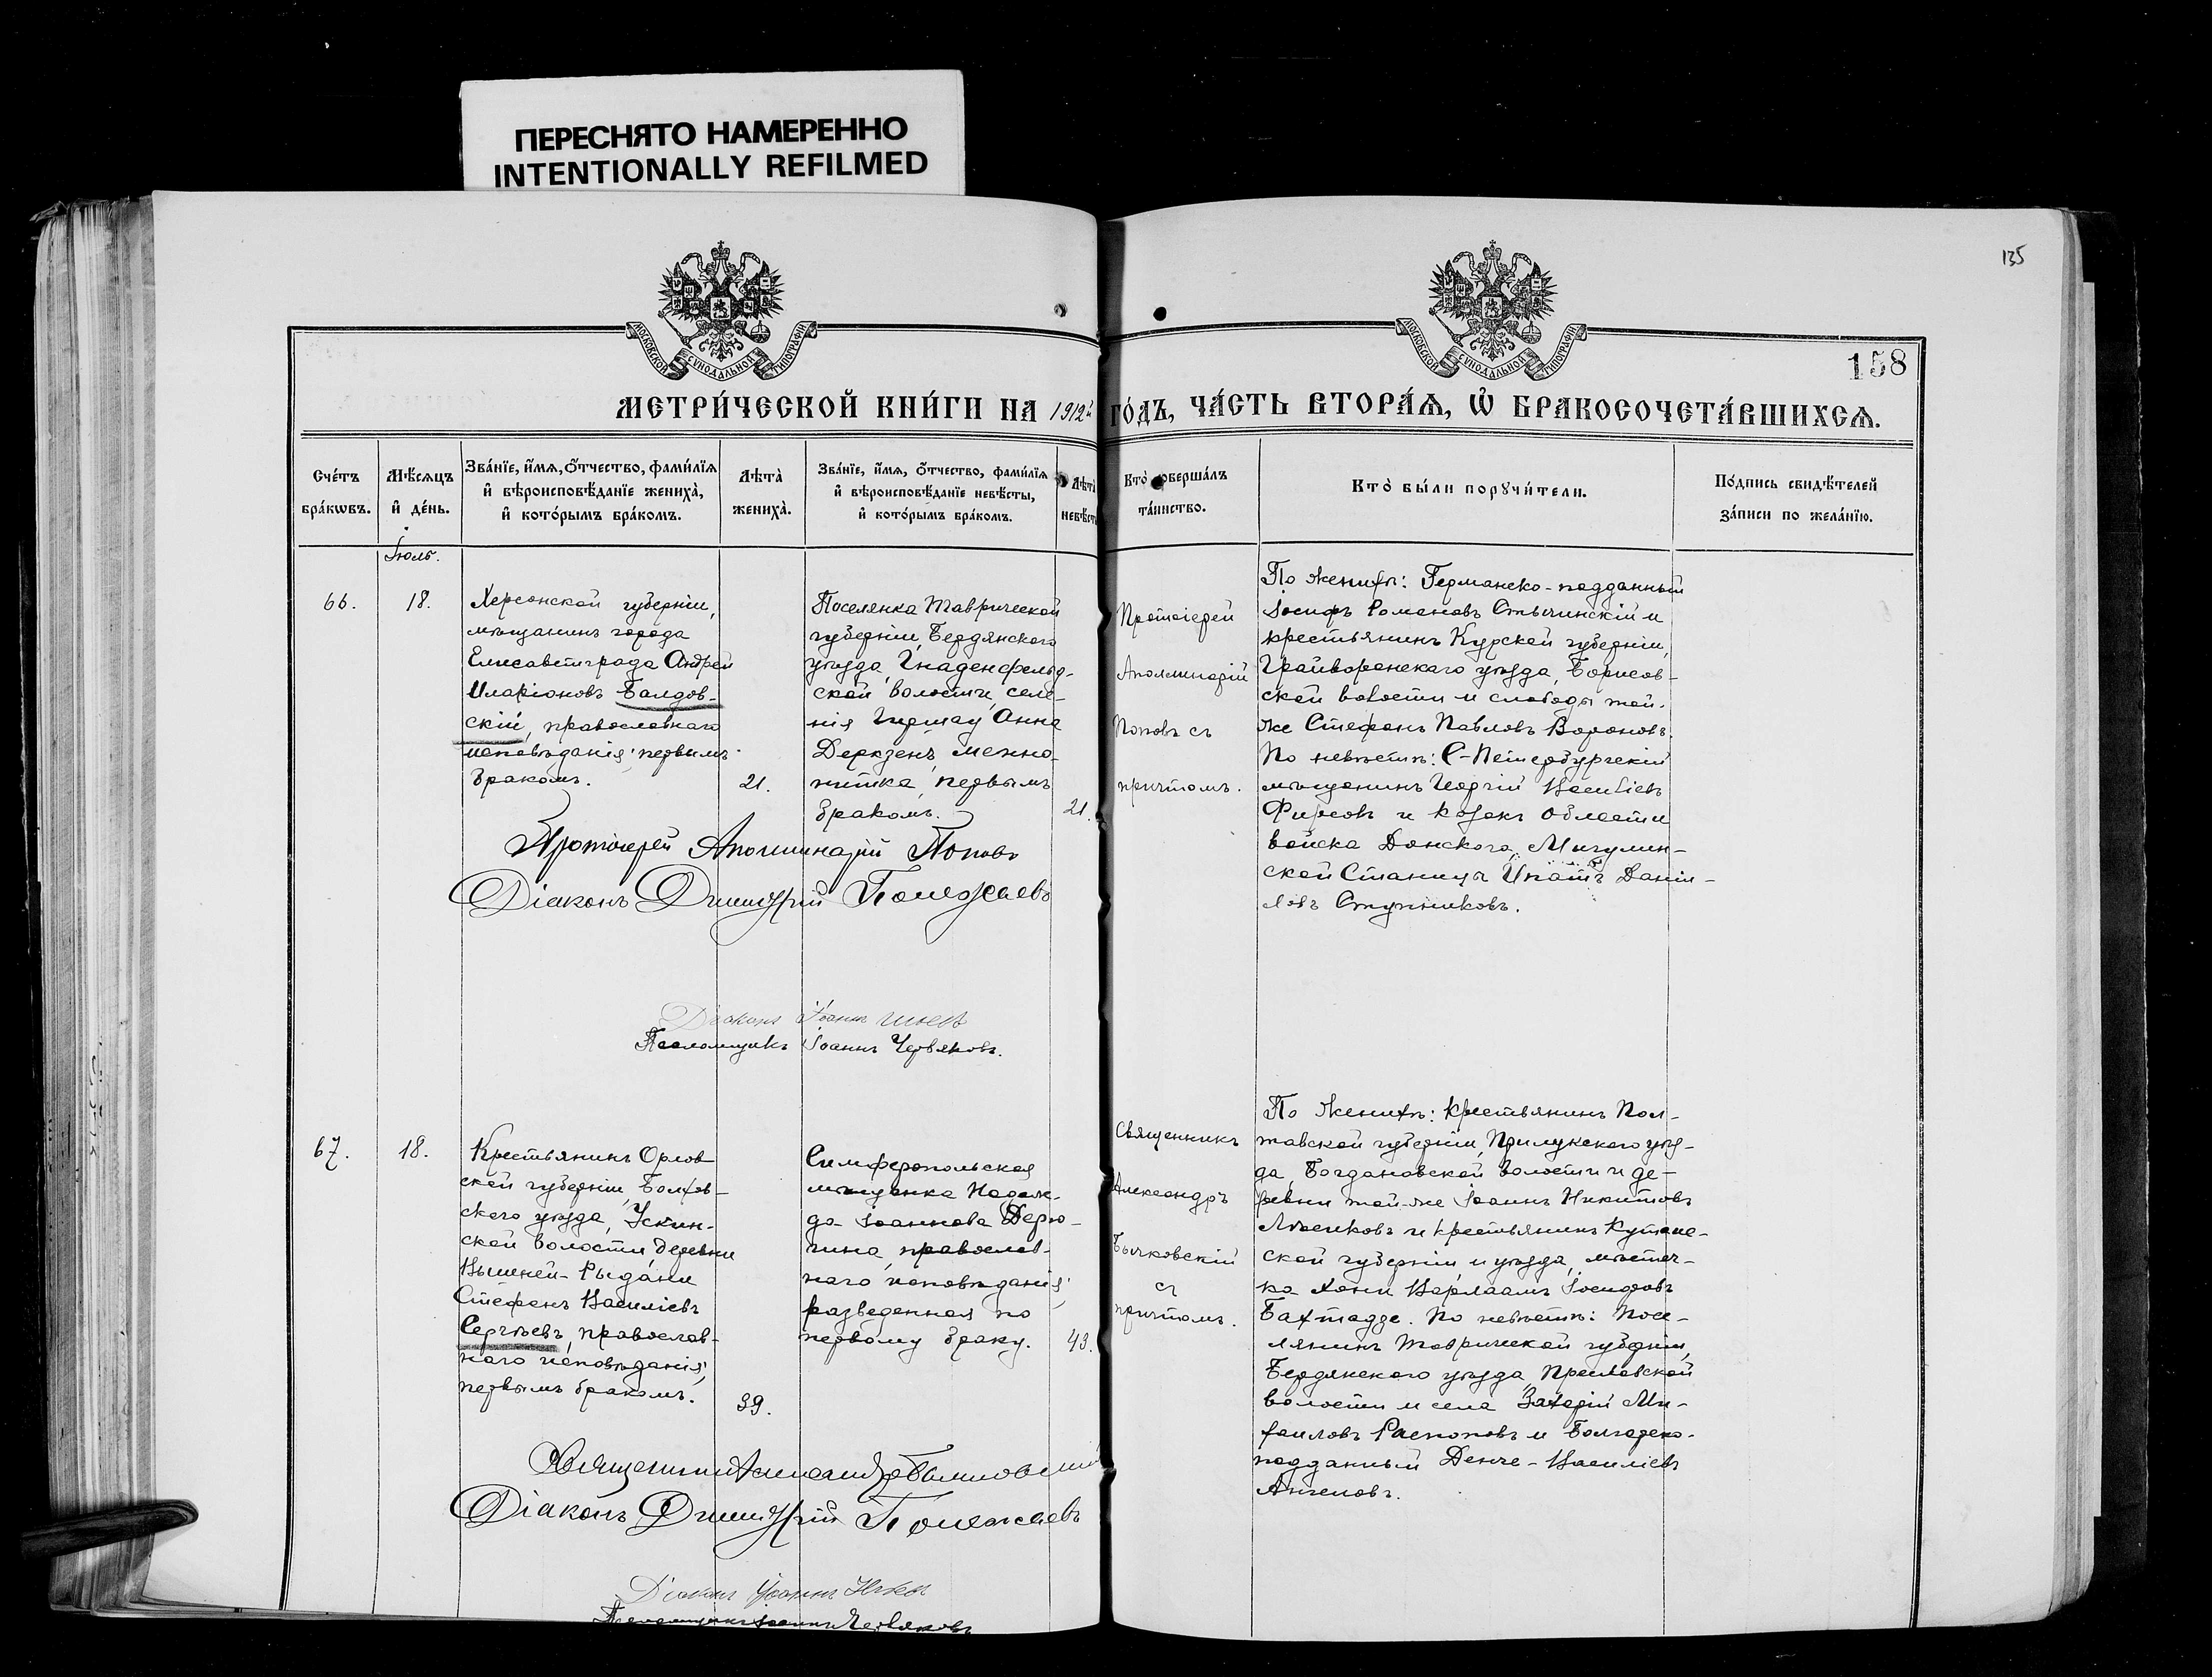 ПЕРЕСНЯТО НАМЕРЕННО
INTENTIONALLY REFILMED
135
158
МОСКОВСКОЙ СУНОДАЛЬНОЙ ТИПОГРАФІИ
МОСКОВСКОЙ СУНОДАЛЬНОЙ ТИПОГРАФІИ
МЕТРИ́ЧЕСКОЙ КНИ́ГИ НА 1912й ГО́ДЪ, ЧА́СТЬ ВТОРА́Ѧ, Ѡ҆ БРАКОСОЧЕТА́ВШИХСѦ.
Сче́тъ
бра́кѡвъ.
Мѣ́сяцъ
и҆ де́нь.
Зва́нїе, и҆́мѧ, ѻ҆́тчество, фами́лїѧ
и҆ вѣроисповѣ́данїе жениха̀,
и҆ кото́рымъ бра́комъ.
Лѣта̀
жениха̀.
Зва́нїе, и҆́мѧ, ѻ҆́тчество, фами́лїѧ
и҆ вѣроисповѣ́данїе невѣ́сты,
и҆ кото́рымъ бра́комъ.
Лѣта̀
невѣ́сты
Кто̀ соверша́лъ
та́инство.
Кто̀ бы́ли порꙋчи́тели.
По́дпись свидѣ́телей
за́писи по жела́нїю.
Іюль.
66.
18.
Херсонской губерніи,
мѣщанинъ города
Елисаветграда Андрей
Иларіоновъ Балдов-
скій, православнаго
исповѣданія, первымъ
бракомъ.
21.
Поселянка Таврической
губерніи, Бердянскаго
уѣзда, Гнаденфельд-
ской волости, селе-
нія Гиршау Анна
Дерксенъ, менно-
нитка, первымъ
бракомъ.
21.
Протоіерей
Аполлинарій
Поповъ съ
причтомъ.
По женихѣ: Германско-подданный
Іосифъ Романовъ Стычинскій и
крестьянинъ Курской губерніи,
Грайворонскаго уѣзда, Борисов-
ской волости и слободы той-
же Стефанъ Павловъ Вороновъ.
По невѣстѣ: С-Петербургскій
мѣщанинъ Георгій Василіевъ
Фирсовъ и козакъ Области
войска Донскаго, Мигулин-
ской Станицы Ипатъ Даніи-
ловъ Ступниковъ.
Протоіерей Аполлинарій Поповъ
Діаконъ Димитрій Полежаевъ
Діаконъ Іоаннъ
Псаломщикъ Іоаннъ Червяковъ.
67.
18.
Крестьянинъ Орлов-
ской губерніи, Болхов-
скаго уѣзда,
ской волости, деревни
Вышней-
Стефанъ Василіевъ
Сергѣевъ, православ-
наго исповѣданія,
первымъ бракомъ.
39.
Симферопольская
мѣщанка Надеж-
да Іоаннова Дерю-
гина, православ-
наго исповѣданія,
разведенная по
первому браку.
43.
Священникъ
Александръ
Бычковскій
съ
причтомъ.
По женихѣ: крестьянинъ Пол-
тавской губерніи, Прилукскаго уѣз-
да, Богдановской волости и де-
ревни той-же Іоаннъ Никитовъ
и крестьянинъ Кутаис-
ской губерніи и уѣзда, мѣстеч-
ка Хони Варлаамъ Іосифовъ
Бахтадзе. По невѣстѣ: Посе-
лянинъ Таврической губерніи,
Бердянскаго уѣзда, Преславской
волости и села Захарій Ми-
хаиловъ Распоповъ и Болгарско-
подданный Денче-Василіевъ
Ангеловъ.
Священникъ Александръ Бычковскій
Діаконъ Димитрій Полежаевъ
Діаконъ Іоаннъ
Псаломщикъ Іоаннъ Червяковъ